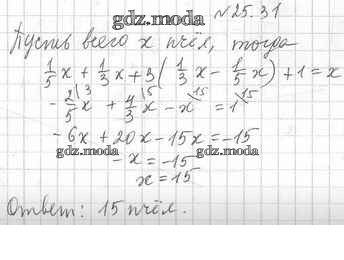 gdz.moda №25.31
Пусть всего x пчёл, тогда
1/5 x + 1/3 x + 3(1/3 x - 1/5 x) + 1 = x
gdz.moda gdz.moda
- 2/5 x |3 + 4/3 x |5 - x |15 = 1 |15
- 6x + 20x - 15x = -15
gdz.moda gdz.moda
- x = -15
x = 15
Ответ: 15 пчёл.